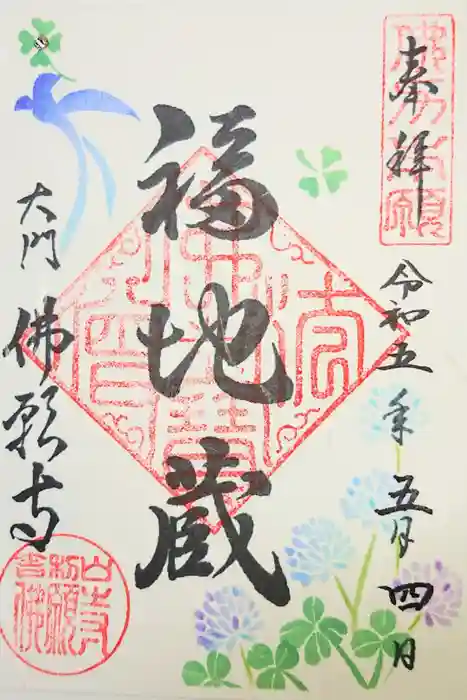 奉拝
令和五年五月四日
福地蔵
大門
佛願寺